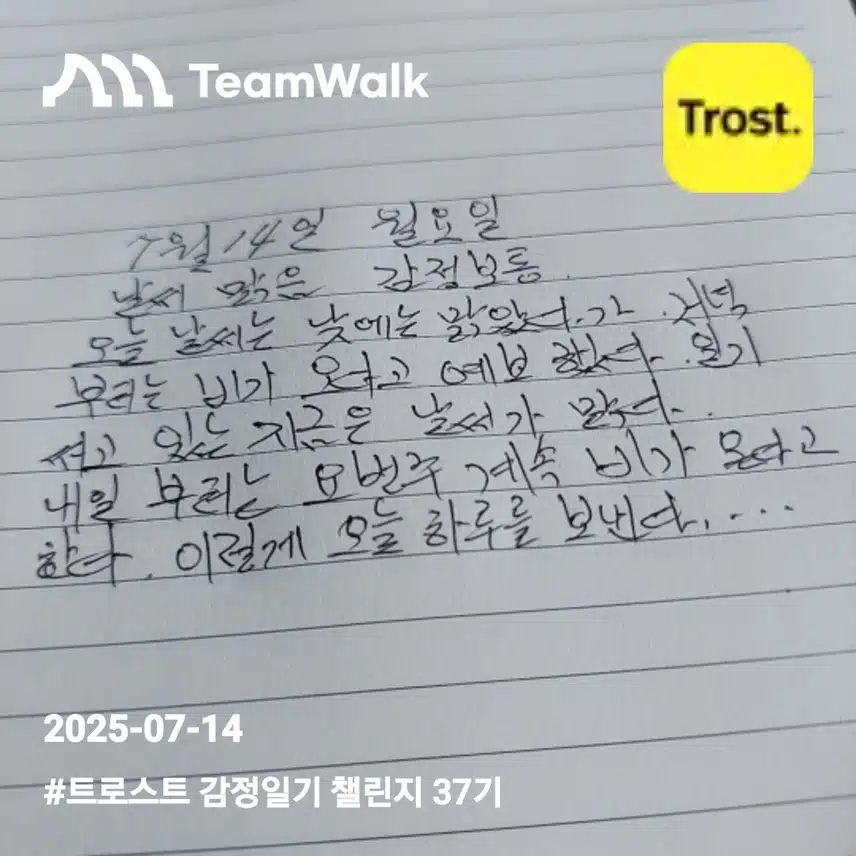 TeamWalk
Trost.
7월 14일 월요일
날씨 맑음 감정보통.
오늘 날씨는 낮에는 맑았다가. 저녁
부터는 비가 온다고 예보 했다. 일기
쓰고 있는 지금은 날씨가 맑다.
내일 부터는 요번주 계속 비가 온다고
한다. 이렇게 오늘 하루를 보낸다. ...
2025-07-14
#트로스트 감정일기 챌린지 37기